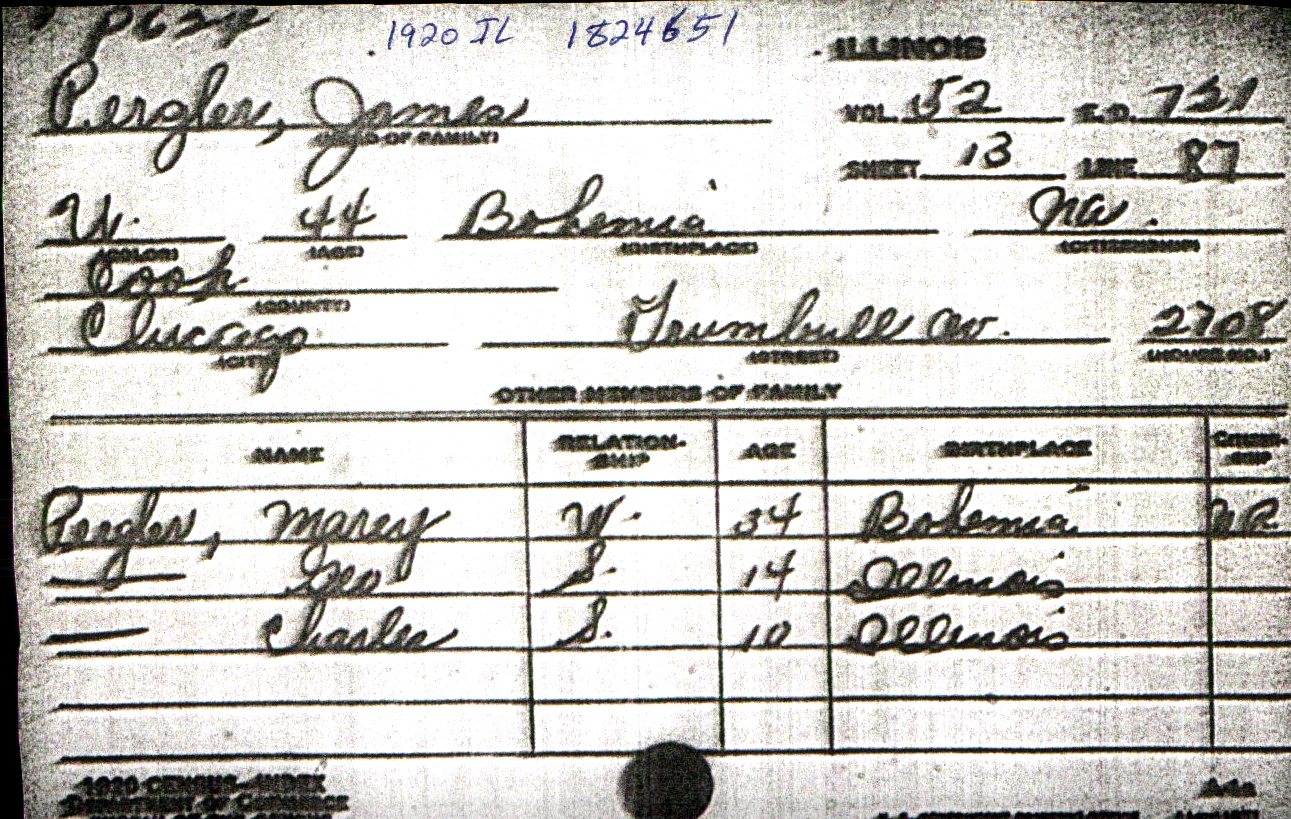 P624
1920 IL 1824651
ILLINOIS
Pergler, James
(HEAD OF FAMILY)
VOL. 52 E.D. 731
SHEET 13 LINE 87
W. 44 Bohemia Na.
(COLOR) (AGE) (BIRTHPLACE) (CITIZENSHIP)
Cook
(COUNTY)
Chicago Trumbull av. 2708
(CITY) (STREET) (HOUSE NO.)
OTHER MEMBERS OF FAMILY
NAME RELATION-SHIP AGE BIRTHPLACE CITIZEN-SHIP
Pergler, Marey W. 34 Bohemia
— Geo S. 14 Illinois
— Charles S. 10 Illinois
1920 CENSUS-INDEX
DEPARTMENT OF COMMERCE